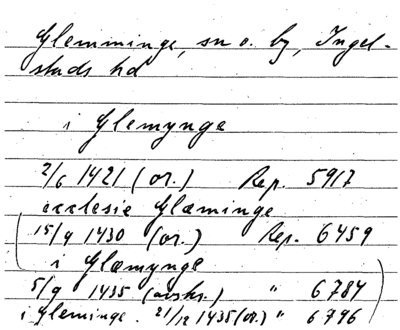 Glemminge, sn o. by, Ingel-
stads hd
i Glemynge
2/6 1421 (or.) Rep. 5917
ecclesie Glæminge
(15/4 1430 (or.) Rep. 6459
i Glæmynge
5/9 1435 (avskr.) " 6784)
i Gleminge. 21/12 1435 (or.) " 6796